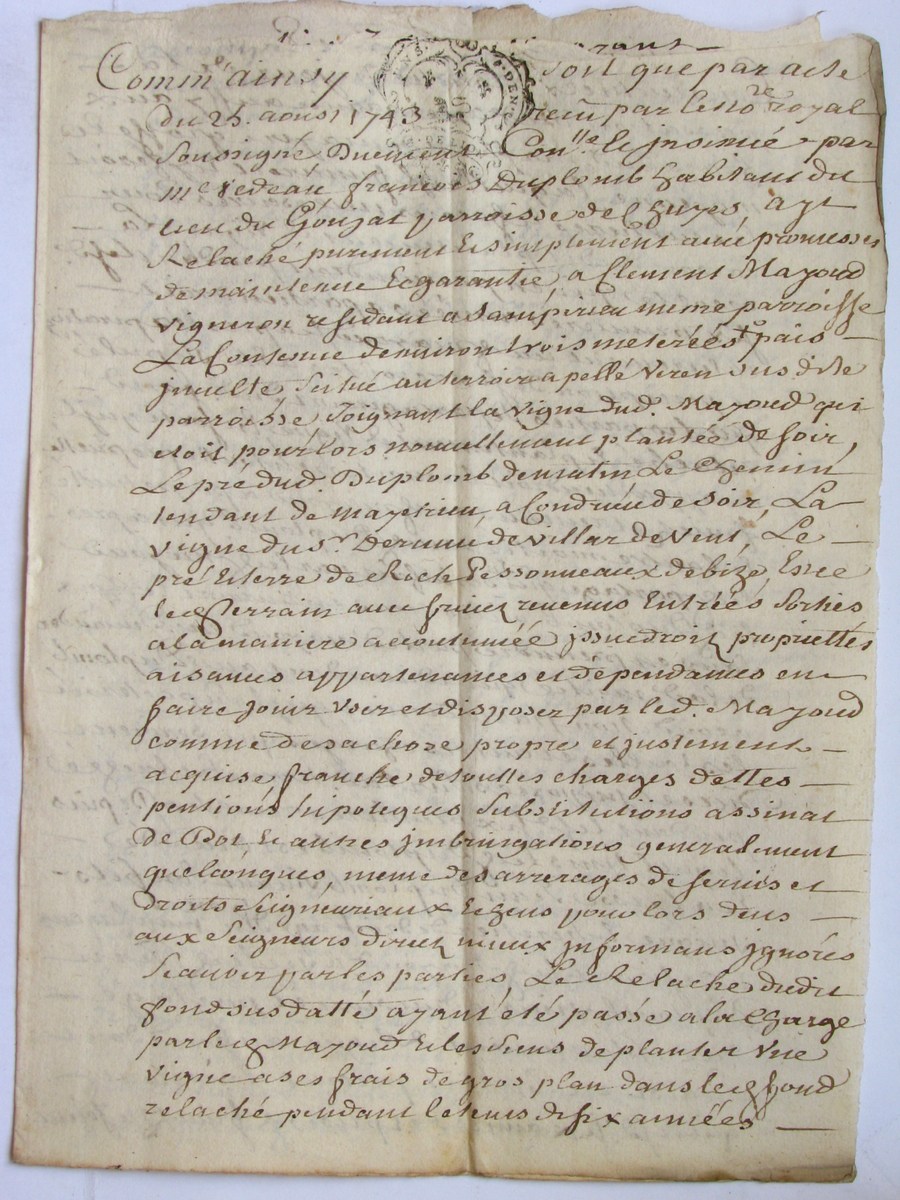 Comme ainsy soit que par acte
du 25. aoust 1743 receu par le no.re royal
soussigné Duement Con.llé & insinué par
françois Duplomb habitant du
lieu du Goujat parroisse de Chuyes, ayt
Relaché purement & simplement avec promesses
de maintenue & garantie, a Clement Mazoud
vigneron residant a même parroisse
La Contenue denviron trois meterées pais
jnculte, situé au terroir apellé Viren susdite
parroisse Joignant la vigne dud. Mazoud qui
etoit pour lors nouvellement plantée de soir,
Le pré dud. Duplomb de matin, Le Chemin
tendant de a Condrieu de soir, La
vigne du s.r de villar de vent, Le
pré & terre de Roch Pessonneaux de bize, Et ce
led. terrain avec fruits revenus Entrées sorties
a la maniere accoutumée jssue droits proprietés
aisances appartenances et dependances en
faire jouir user et disposer par led. Mazoud
comme de sa chose propre et justement
acquise franche de touttes charges dettes
pentions hipoteques substitutions assinat
de Dot & autres jmbringations generalement
quelconques, meme des arrerages de servis et
droits seigneuriaux & gens pour lors deus
aux seigneurs directs mieux jnformans jgnorés
scauoir par les parties, Le Relaché dudit
fond susdatté ayant été passé a la charge
par led. Mazoud & les siens de planter une
vigne a ses frais de gros plan dans led. fond
relaché pendant le tems de six années